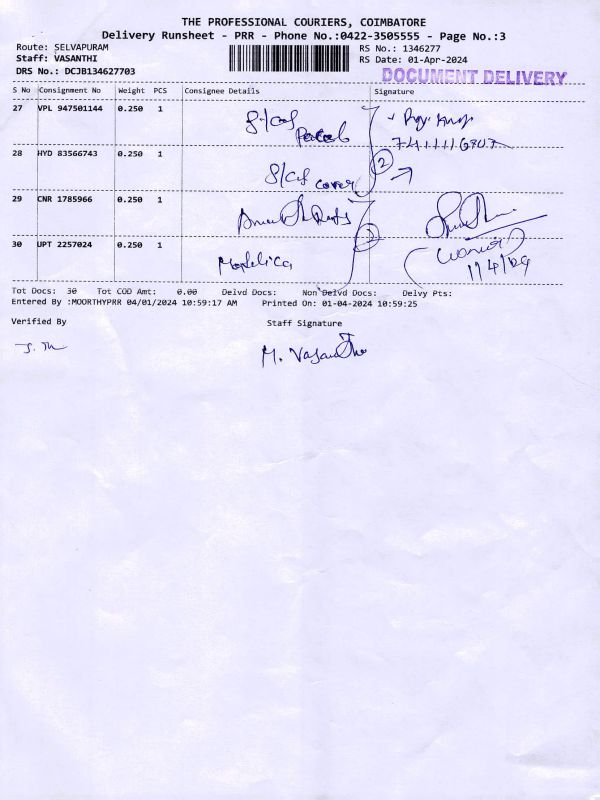 THE PROFESSIONAL COURIERS, COIMBATORE
Delivery Runsheet - PRR - Phone No.:0422-3505555 - Page No.:3
Route: SELVAPURAM
Staff: VASANTHI
DRS No.: DCJB134627703
RS No.: 1346277
RS Date: 01-Apr-2024
DOCUMENT DELIVERY
S No Consignment No Weight PCS Consignee Details Signature
27 VPL 947501144 0.250 1
28 HYD 83566743 0.250 1
cover
2
29 CNR 1785966 0.250 1
30 UPT 2257024 0.250 1
1/4/24
Tot Docs: 30 Tot COD Amt: 0.00 Delvd Docs: Non Delvd Docs: Delvy Pts:
Entered By :MOORTHYPRR 04/01/2024 10:59:17 AM Printed On: 01-04-2024 10:59:25
Verified By Staff Signature
M. Vasantha